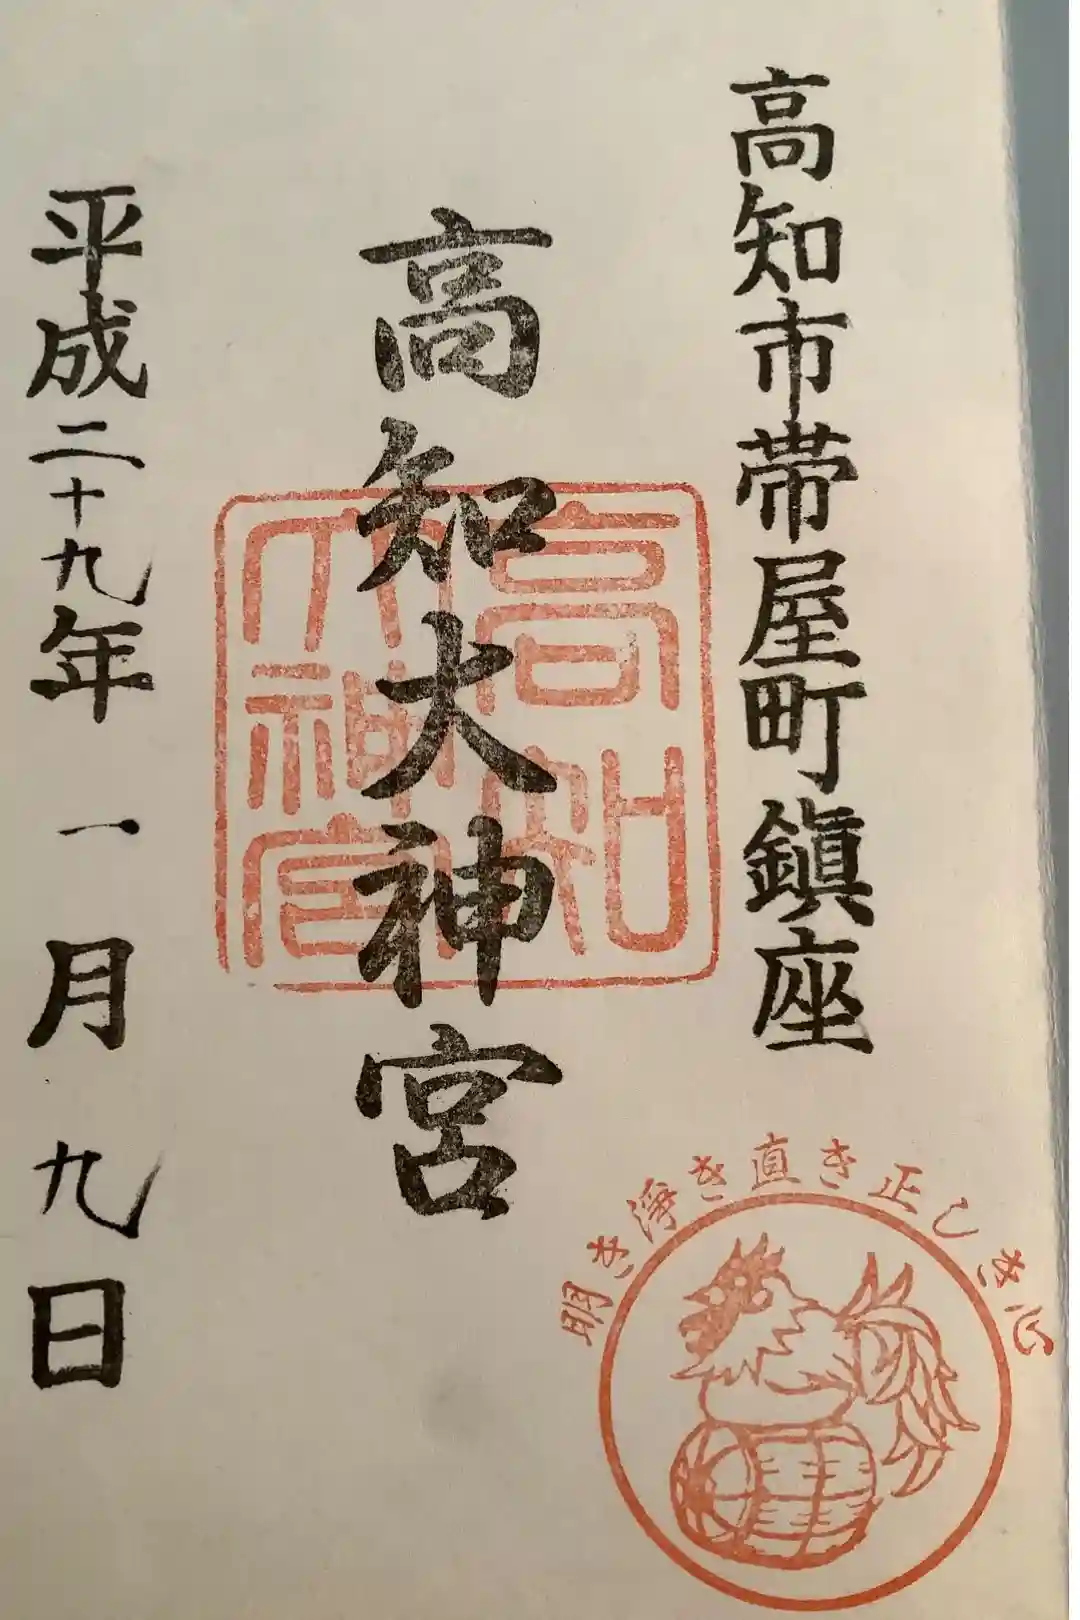 高知市帯屋町鎮座
高知大神宮
高知
大神宮
平成二十九年一月九日
明き淨き直き正しき心